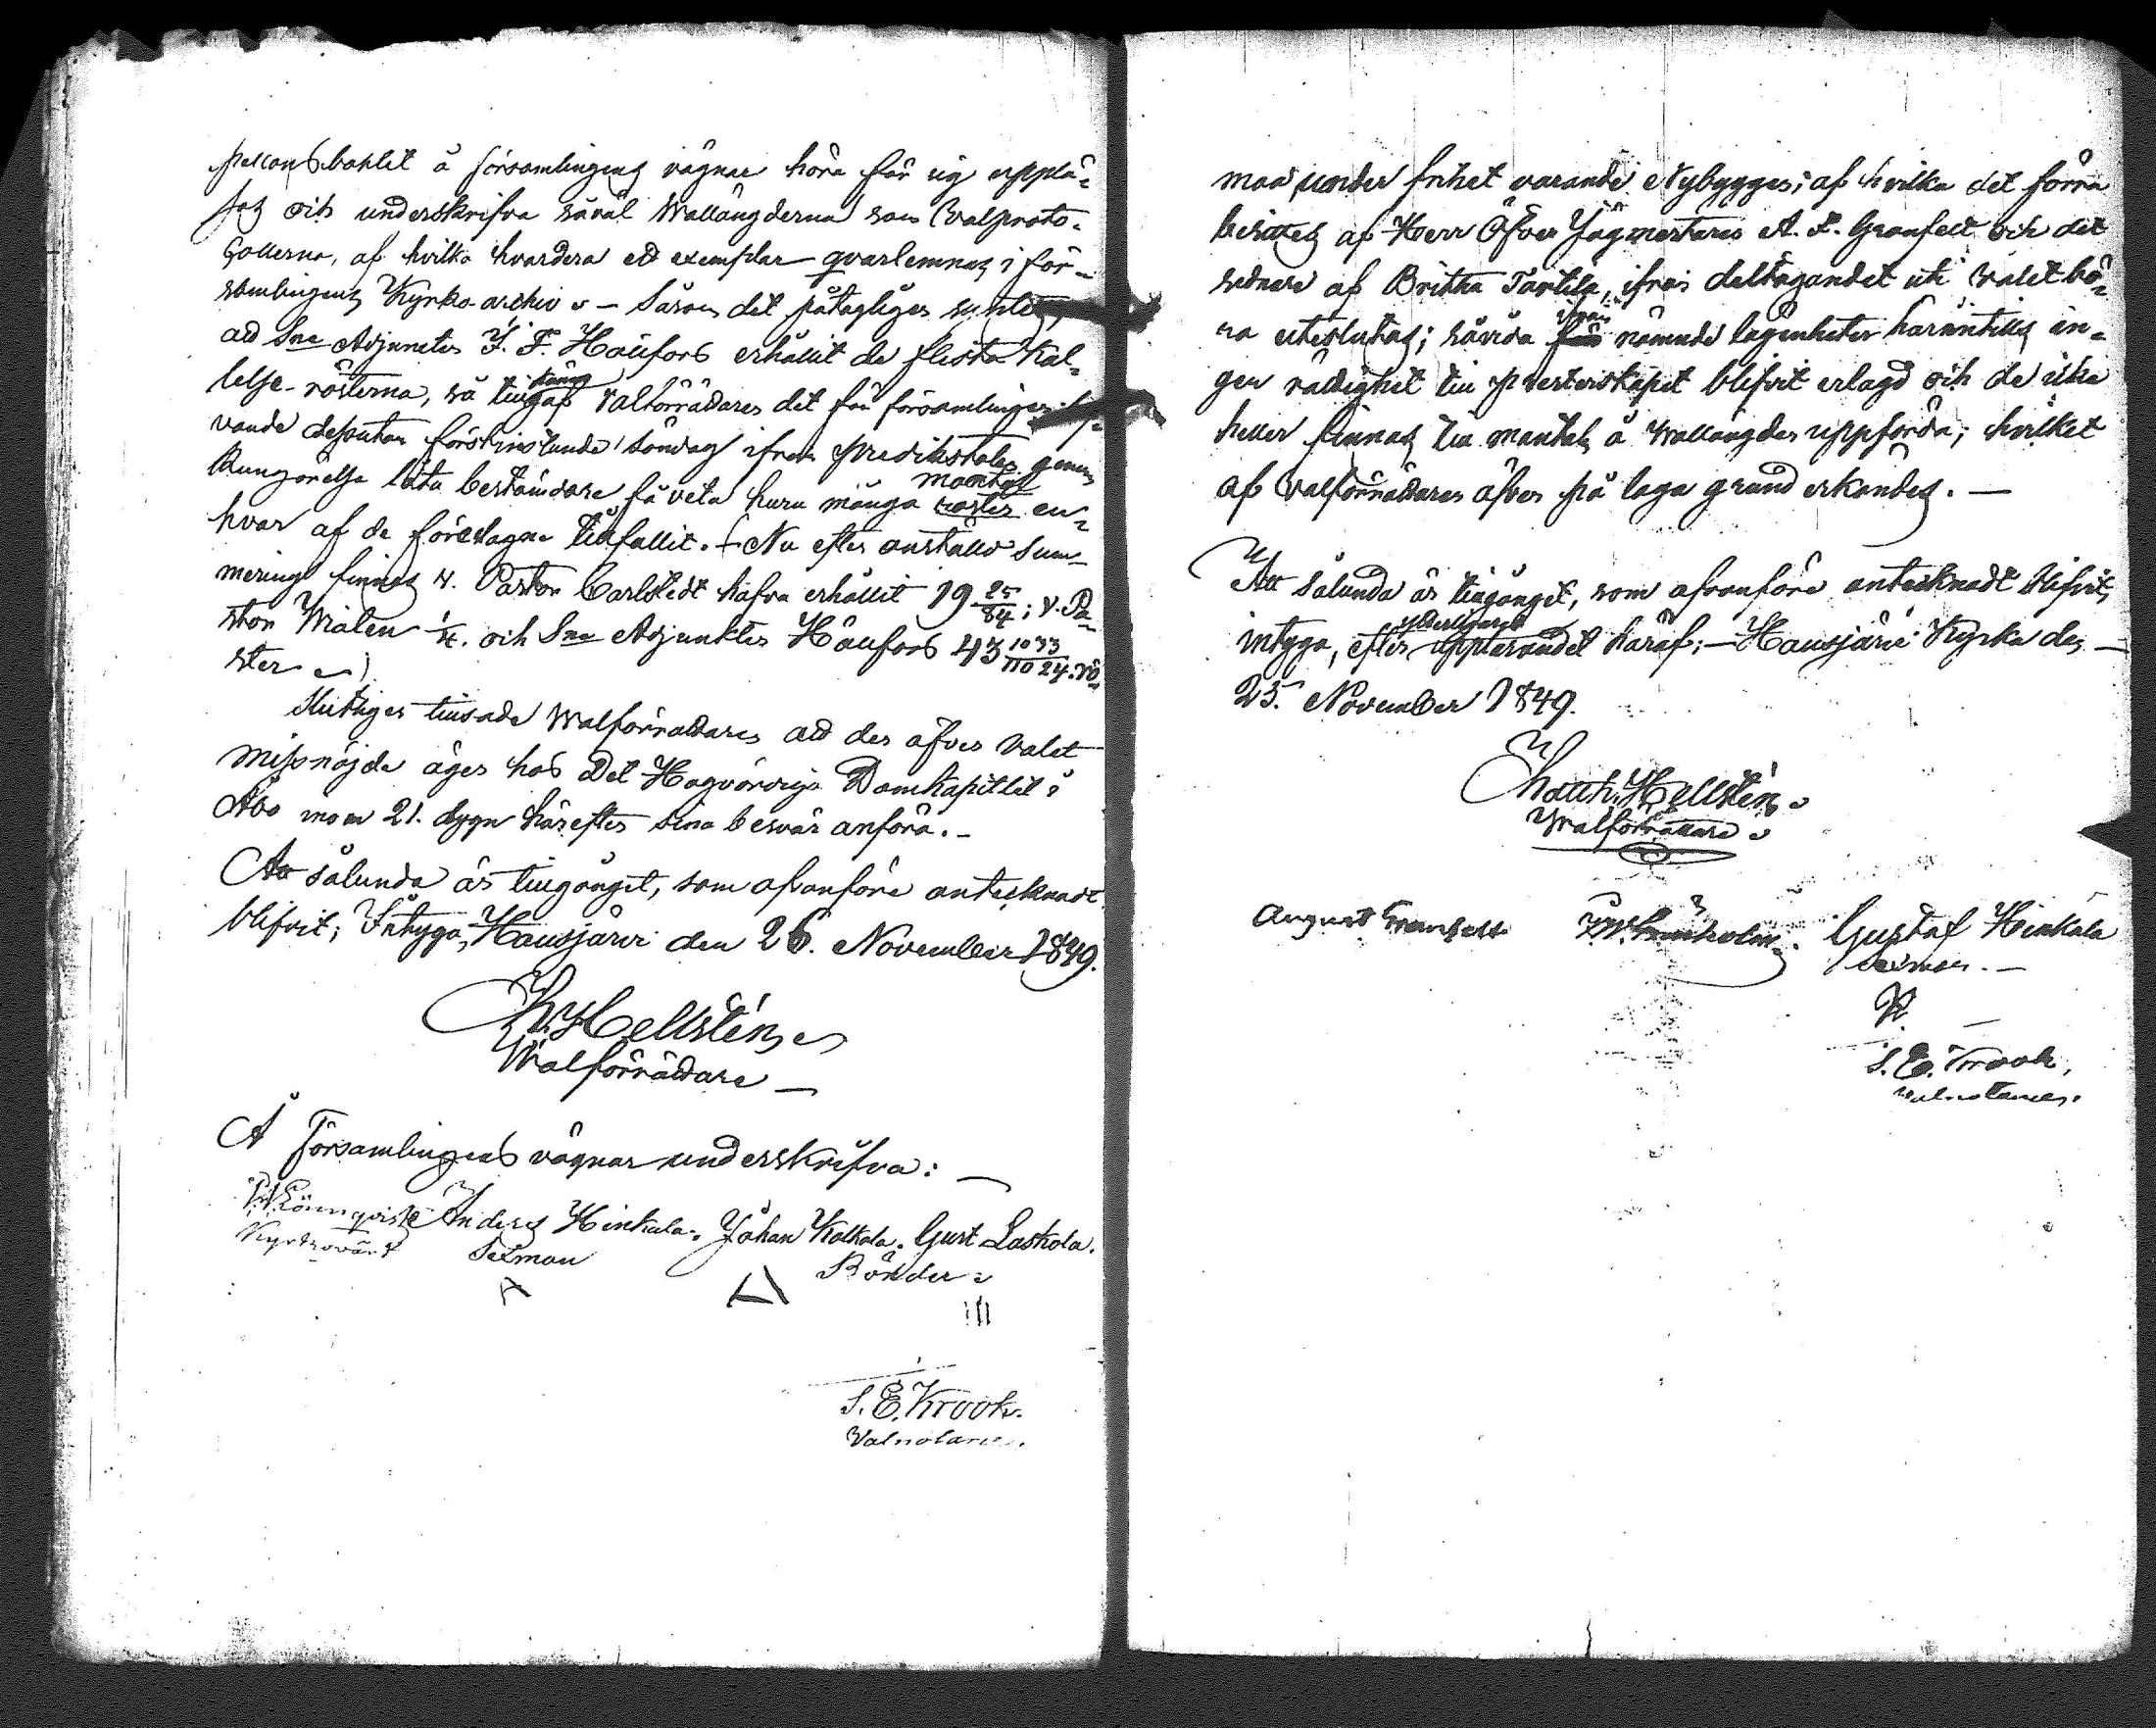 å församlingens vägnar höra för sig upplä-
sas och underskrifva såväl Wallängderna som Valproto-
collerna, af hvilka hvardera ett exemplar qvarlemnas i för-
samlingens Kyrko archiv. – Såsom det påtagligen
att Sne Adjuncten J. F. Häufors erhållit de flesta Kal-
lelse-rösterna, så Valförrättaren det för församlingen
vande deputan förstinstundande söndag ifrån predikstolen genom
Kungörelse låta bestämdare få veta huru många röster en-
hvar af de föreslagne tillfallit. – Nu efter anstalld sum-
mering finnes V. Pastor Carlstedt hafva erhållit 19 25/84; V. Pa-
stor Malen 1/4. och Sne Adjunkten Häufors 43 1033/11024. rö-
ster
Slutligen tillsade Walförrättaren att den öfver valet
missnöjde äger hos Det Högvördiga Domkapitlet i
Åbo inom 21. dygn härefter sina besvär anföra. –
Att sålunda är tillgånget, som ofvanföre antecknadt
blifvit; Intyga, Hausjärvi den 26. November 1849.
Hellsten
Walförrättare
Å Församlingens vägnar underskrifva: –
Lönnqvist Anders Hinkala. Johan Kolkala. Gust Laskola.
Kyrkovärd Sexman Bönder
S. E. Krook.
Valnotarie.
under frihet varande Nybyggen; af hvilka det förra
besittes af Herr Öfver Jägmästaren A. F. Granfelt och det
sednare af Britha Tartila, ifrån deltagandet uti valet bö-
ra uteslutas; såvida ifrån nämnde lägenheter härintills in-
gen rättighet till Presterskapet blifvit erlagd och de icke
heller finnas till mantals å Wallängden uppförda; hvilket
af Valförrättaren äfven på laga grund erkändes. –
Att sålunda är tillgånget, som ofvanföre antecknadt blifvit,
intyga, efter uppläsandet häraf; – Hausjärvi Kyrka den
25. November 1849.
Hellsten
Walförrättare
August Granfelt Gustaf Hinkala
sexman. –
S. E. Krook,
Valnotarie.